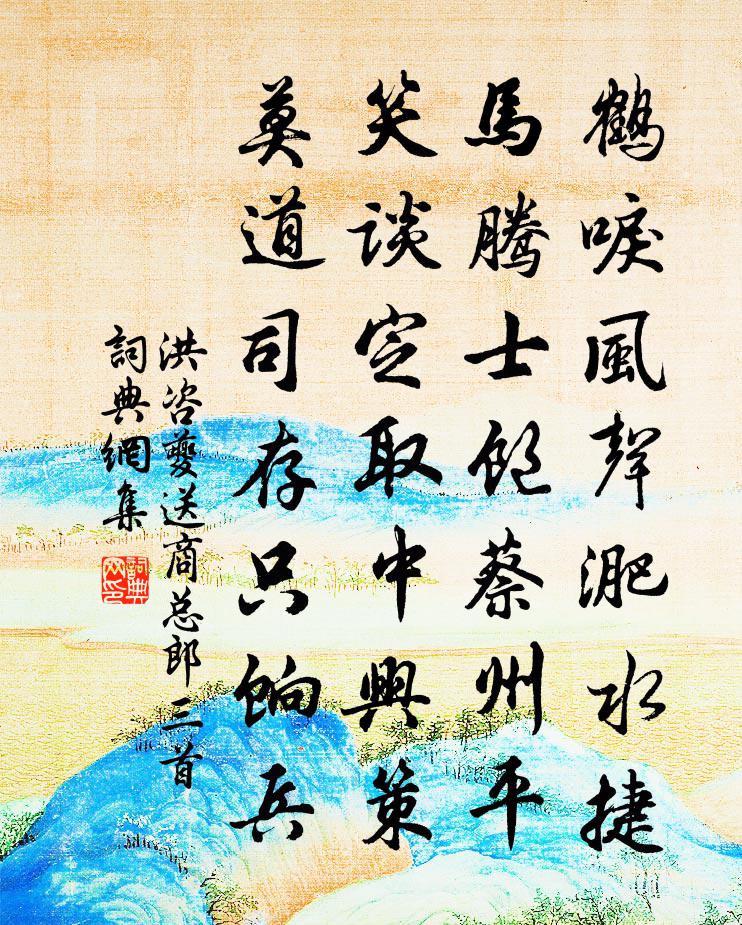 鶴唳風聲淝水捷
馬騰士飽蔡州平
笑談定取中興策
莫道司存只餉兵
洪咨夔送商总郎三首
詞典網集
詞典網印